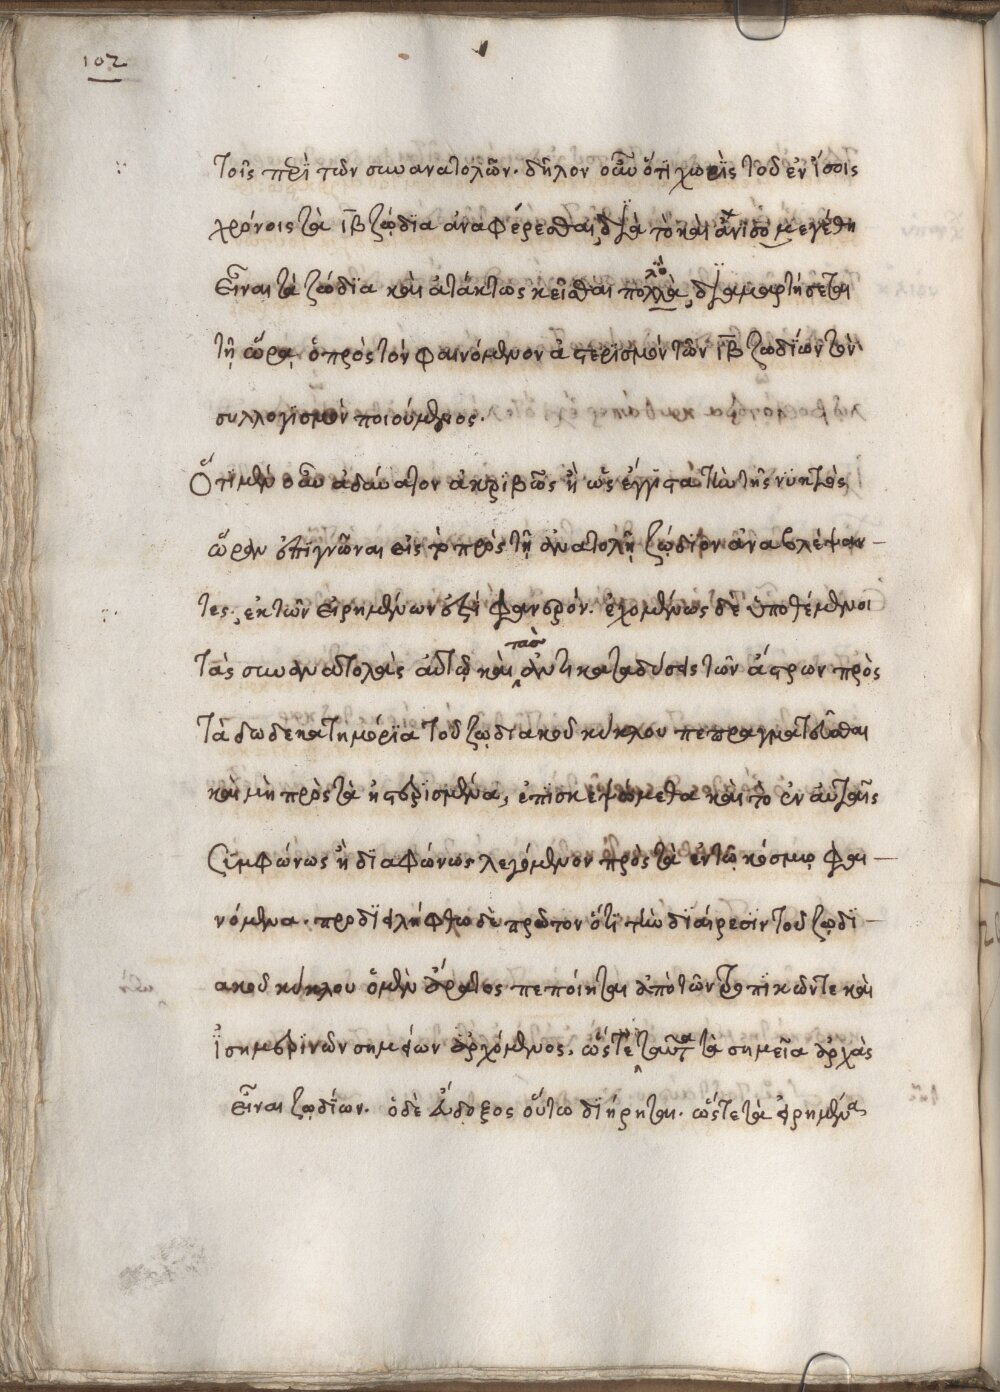 102
τοῖς περὶ τῶν συνανατολῶν. δῆλον οὖν ὅτι χωρὶς τοῦ ἐν ἴσοις
χρόνοις τὰ ιβ ζῴδια ἀναφέρεσθαι, διὰ τὸ καὶ ἄνισο μεγέθη
εἶναι τὰ ζώδια καὶ ἀτάκτως κεῖσθαι πολλὰ, διαμαρτήσεται
τῇ ὥρᾳ ὁ πρὸς τὸν φαινόμενον ἀστερισμὸν τῶν ιβ ζωδίων τὸν
συλλογισμὸν ποιούμενος.
Ὅτι μὲν οὖν ἀδύνατον ἀκριβῶς ἢ ὡς ἔγγιστα τὴν τῆς νυκτὸς
ὥραν ἐπιγνῶναι εἰς τὸ πρὸς τῇ ἀνατολῇ ζῴδιον ἀναβλέψαν
τες, ἐκ τῶν εἰρημένων ἐστὶ φανερόν. ἑχομένως δὲ ὑποθέμενοι
τὰς συνανατολὰς αὐτῷ καὶ τὰσ ἀντικαταδύσεις τῶν ἄστρων πρὸς
τὰ δωδεκατημόρια τοῦ ζῳδιακοῦ κύκλου πεπραγματεῦσθαι
καὶ μὴ πρὸς τὰ ἠστερισμένα, ἐπισκεψώμεθα καὶ τὸ ἐν αὐταῖς
συμφώνως ἢ διαφώνως λεγόμενον πρὸς τὰ ἐν τῷ κόσμῳ φαι
νόμενα. προδιειλήφθω δὲ πρῶτον ὅτι τὴν διαίρεσιν τοῦ ζῳδι
ακοῦ κύκλου ὁ μὲν ἄρατος πεποίηται ἀπὸ τῶν τροπικῶν τε καὶ
ἰσημερινῶν σημείων ἀρχόμενος. ὥστε ταῦτα τὰ σημεῖα ἀρχὰς
εἶναι ζῳδίων. ὁ δὲ εὔδοξος οὕτω διῄρηται. ὥστε τὰ εἰρημένα